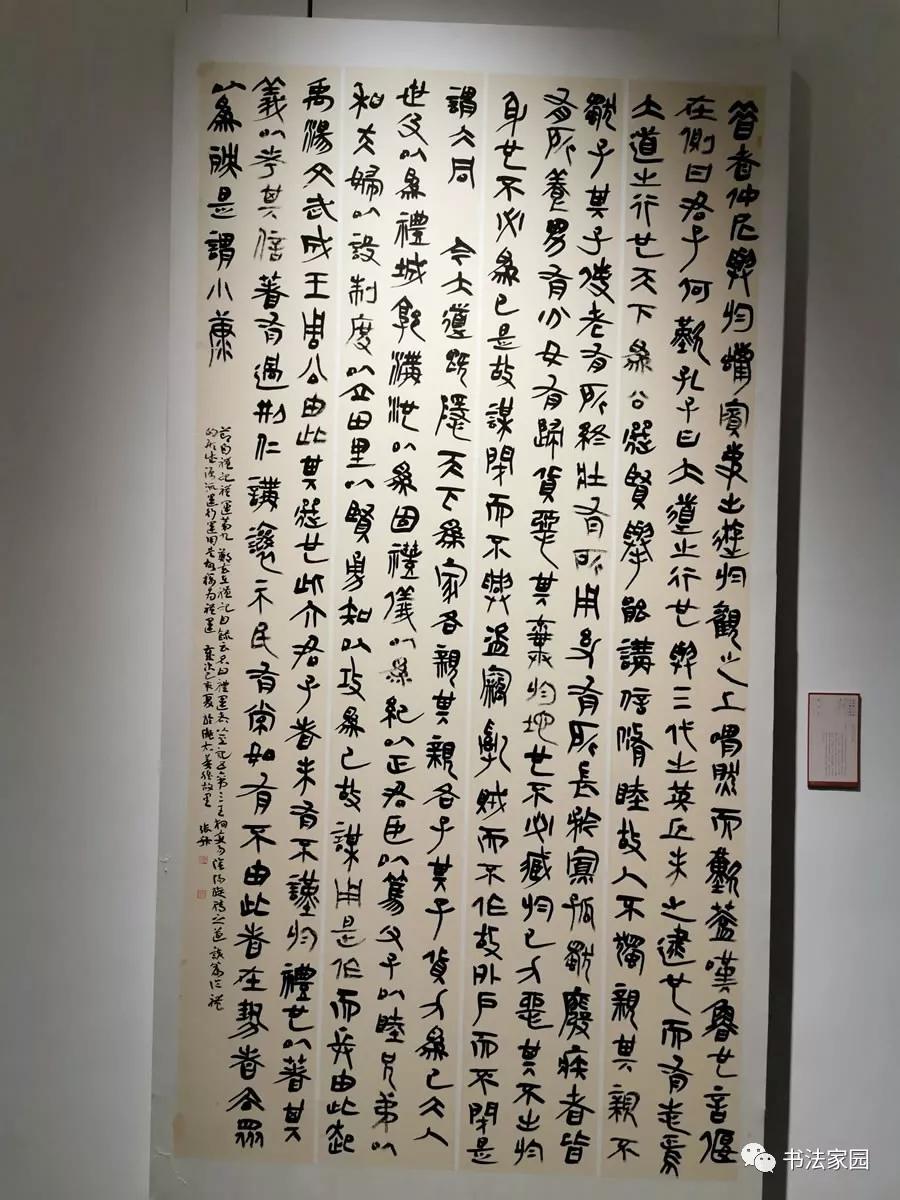 昔者仲尼與於蠟賓事出遊於觀之上喟然而歎蓋嘆魯也言偃
在側曰君子何歎孔子曰大道之行也與三代之英丘未之逮也而有志焉
大道之行也天下為公選賢舉能講信脩睦故人不獨親其親不
獨子其子使老有所終壯有所用幼有所長矜寡孤獨廢疾者皆
有所養男有分女有歸貨惡其棄於地也不必藏於己力惡其不出於
身也不必為己是故謀閉而不興盜竊亂賊而不作故外戶而不閉是
謂大同 今大道既隱天下為家各親其親各子其子貨力為己大人
世及以為禮城郭溝池以為固禮儀以為紀以正君臣以篤父子以睦兄弟以
和夫婦以設制度以立田里以賢勇知以功為己故謀用是作而兵由此起
禹湯文武成王周公由此其選也此六君子者未有不謹於禮也以著其
義以考其信著有過刑仁講讓示民有常如有不由此者在勢者去眾
以為殃是謂小康
節自禮記禮運第九
书法家园